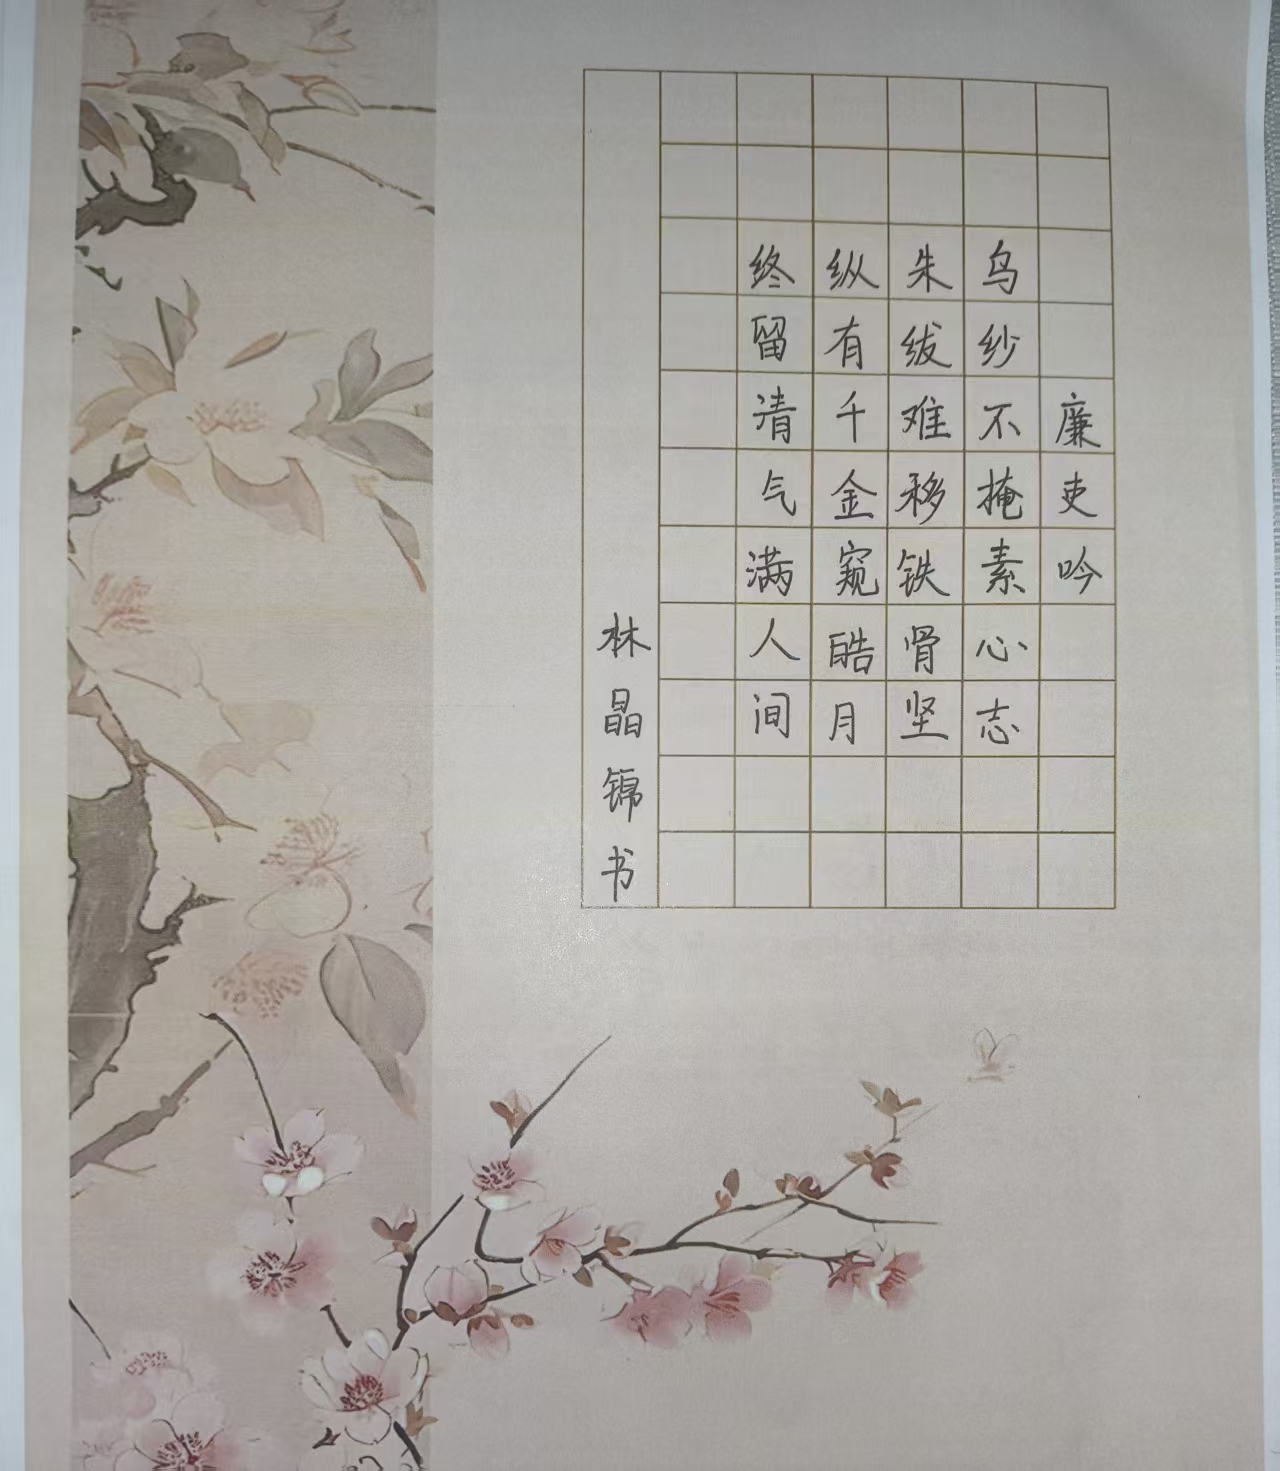 廉吏吟
乌纱不掩素心志
朱绂难移铁骨坚
纵有千金窥皓月
终留清气满人间
林晶锦书